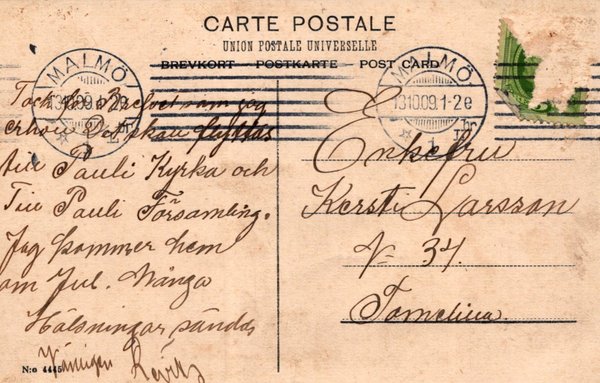 CARTE POSTALE
UNION POSTALE UNIVERSELLE
BREVKORT POSTKARTE POST CARD
MALMÖ
13 10 09. 1-2 e
MALMÖ
13 10 09. 1-2 e
Tack för brefvet som jag
erhöll Det skau flyttas
till Pauli Kyrka och
Till Pauli Församling.
Jag kommer hem
om Jul. Många
Hälsningar sändas
Vänligen
Enkefru
Kersti Larsson
N: 34
Tomelilla.
N:o 4445